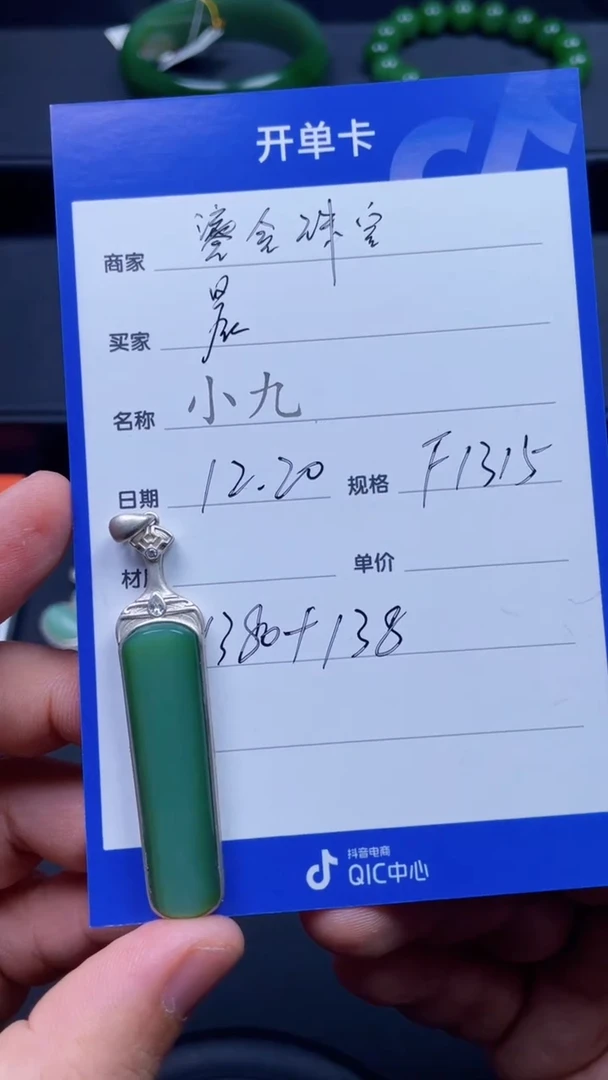 开单卡
商家 鎏金珠宝
买家 晨
名称 小九
日期 12.20 规格 F1315
材 单价
1380+138
抖音电商
QIC中心